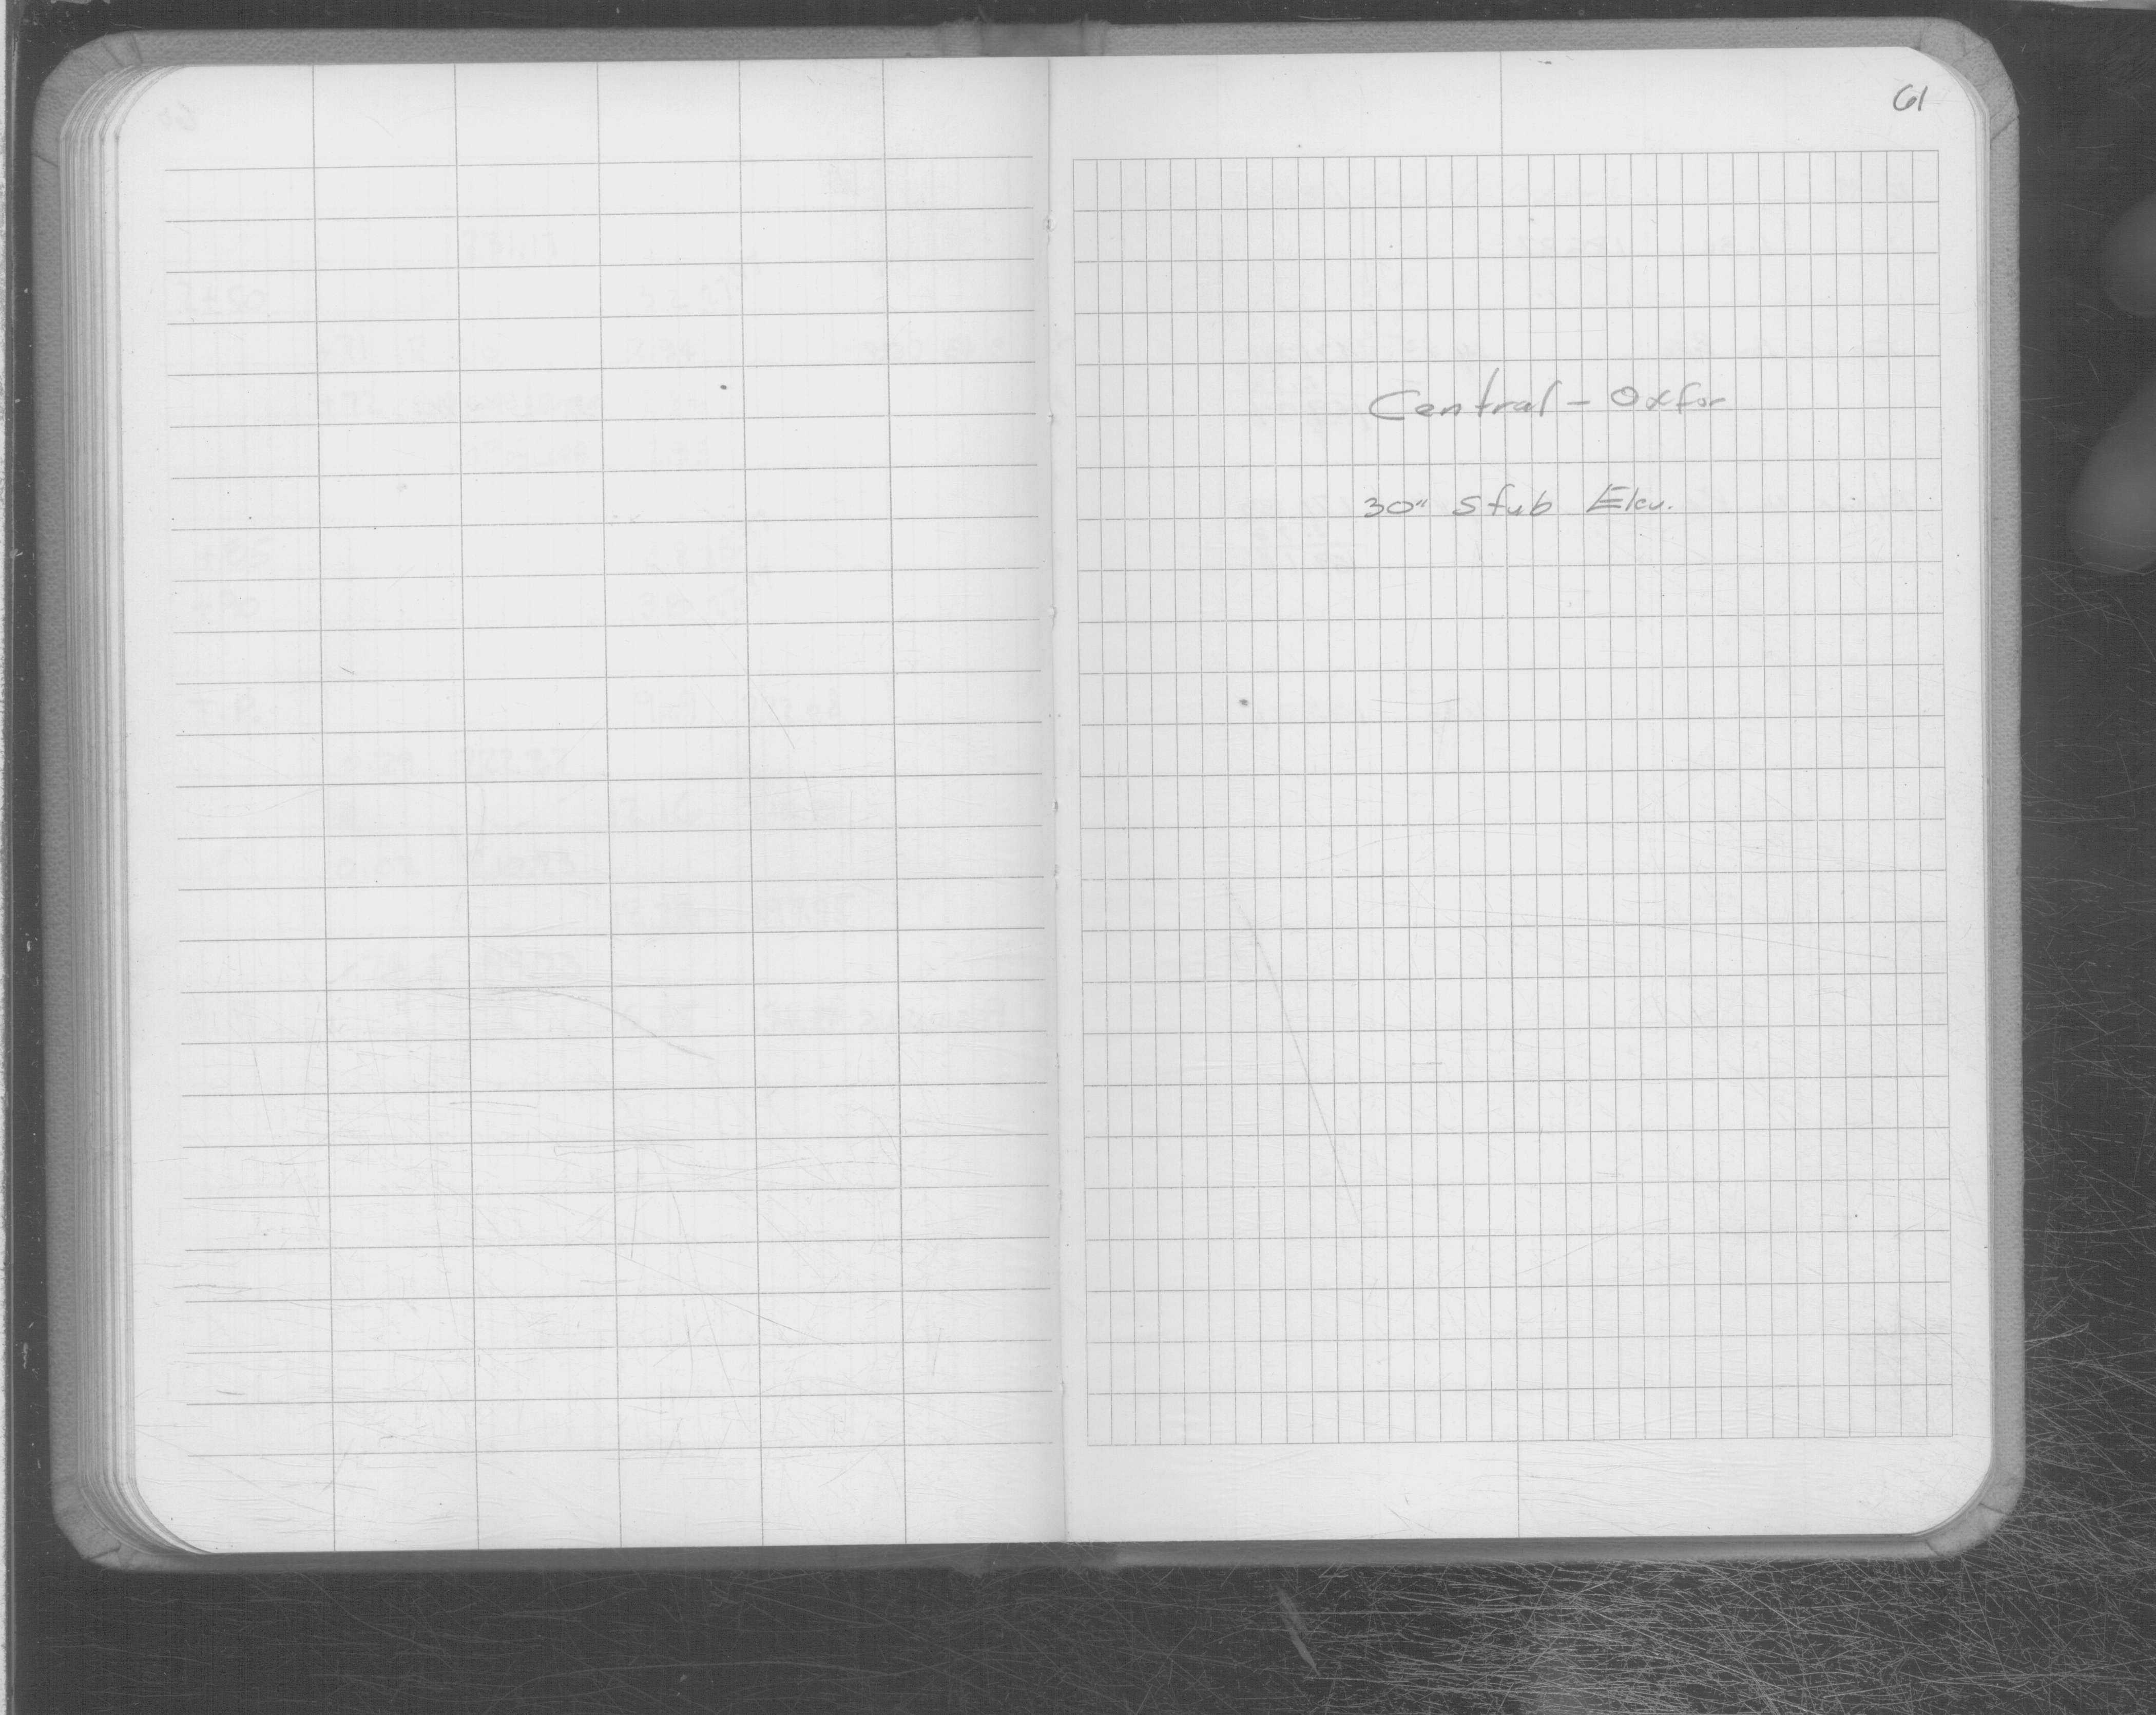 61
Central - Oxfor
30" Stub Elev.